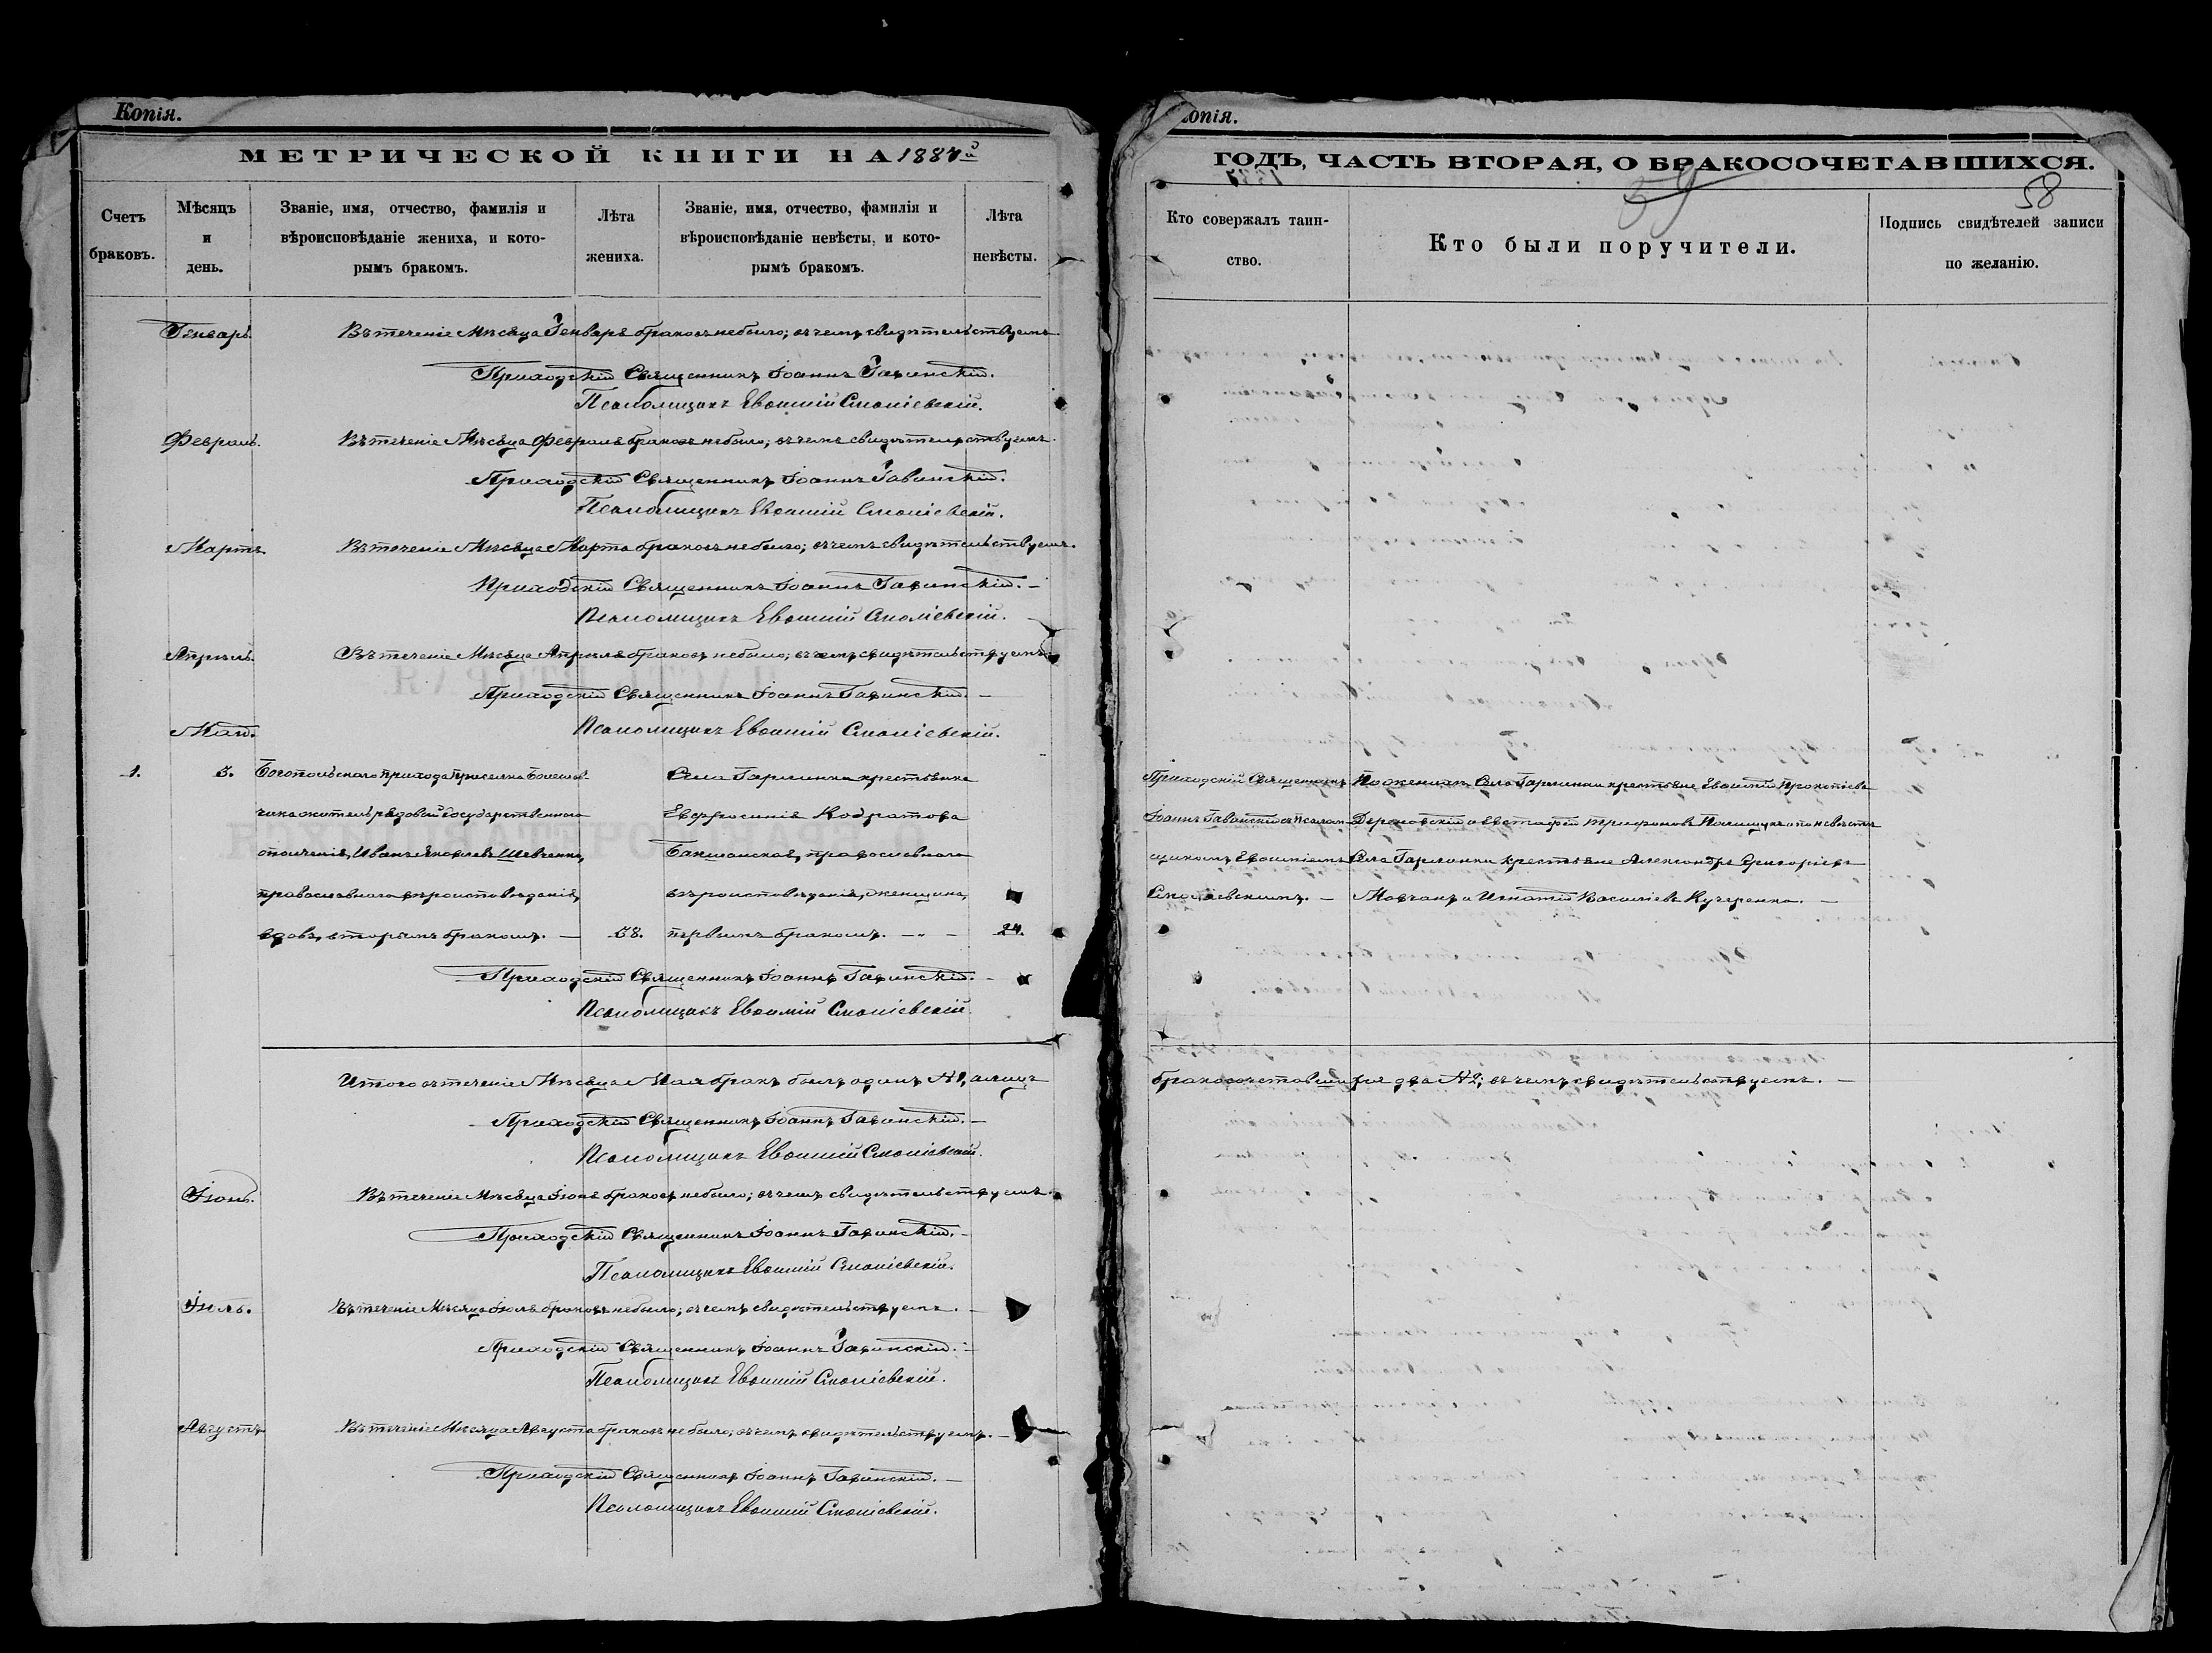 Копія.
МЕТРИЧЕСКОЙ КНИГИ НА 1887й
Счетъ браковъ.
Мѣсяцъ и день.
Званіе, имя, отчество, фамилія и вѣроисповѣданіе жениха, и которымъ бракомъ.
Лѣта жениха.
Званіе, имя, отчество, фамилія и вѣроисповѣданіе невѣсты, и которымъ бракомъ.
Лѣта невѣсты.
Генварь. Въ теченіе Мѣсяца Генваря браковъ небыло; въ чемъ свидѣтельствуемъ.
Приходскій Священникъ Іоаннъ Гавинскій.
Псаломщикъ Евѳимій
Февраль. Въ теченіе Мѣсяца Февраля браковъ небыло; въ чемъ свидѣтельствуемъ.
Приходскій Священникъ Іоаннъ Гавинскій.
Псаломщикъ Евѳимій
Мартъ Въ теченіе Мѣсяца Марта браковъ небыло; въ чемъ свидѣтельствуемъ.
Приходскій Священникъ Іоаннъ Гавинскій. –
Псаломщикъ Евѳимій
Апрѣль. Въ теченіе Мѣсяца Апрѣля браковъ небыло; въ чемъ свидѣтельствуемъ
Приходскій Священникъ Іоаннъ Гавинскій. –
Май. Псаломщикъ Евѳимій
1. 3. Богопольскаго прихода приселка
чика житель рядовой Государственнаго
ополченія, Иванъ Яковлевъ Шевченко,
православнаго вѣроисповѣданія,
вдовъ, вторымъ бракомъ. – 38.
Села крестьянка
Евфросинія Кодратова
православнаго
вѣроисповѣданія, женщина,
первымъ бракомъ. – „ – 24.
Приходскій Священникъ Іоаннъ Гавинскій. –
Псаломщикъ Евѳимій
Итого въ теченіе Мѣсяца Мая бракъ былъ одинъ №1, а лицъ
Приходскій Священникъ Іоаннъ Гавинскій. –
Псаломщикъ Евѳимій
Іюнь. Въ теченіе Мѣсяца Іюня браковъ небыло; въ чемъ свидѣтельствуемъ.
Приходскій Священникъ Іоаннъ Гавинскій. –
Псаломщикъ Евѳимій
Іюль. Въ теченіе Мѣсяца Іюля браковъ небыло; въ чемъ свидѣтельствуемъ. –
Приходскій Священникъ Іоаннъ Гавинскій. –
Псаломщикъ Евѳимій
Августъ Въ теченіе Мѣсяца Августа браковъ небыло; въ чемъ свидѣтельствуемъ. –
Приходскій Священникъ Іоаннъ Гавинскій. –
Псаломщикъ Евѳимій
Копія.
ГОДЪ, ЧАСТЬ ВТОРАЯ, О БРАКОСОЧЕТАВШИХСЯ.
59
58
Кто совершалъ таинство.
Кто были поручители.
Подпись свидѣтелей записи по желанію.
Приходскій Священникъ
Іоаннъ Гавинскій съ псалом-
щикомъ Евѳиміемъ
По женихѣ: Села крестьяне Евѳимій Прокопіевъ
и Евстафій Трифоновъ Полищукъ и по невѣстѣ
Села крестьяне Александръ Григоріевъ
Мовчанъ и Игнатій Василіевъ Кучеренко. –
бракосочетавшихся два №2; въ чемъ свидѣтельствуемъ. –